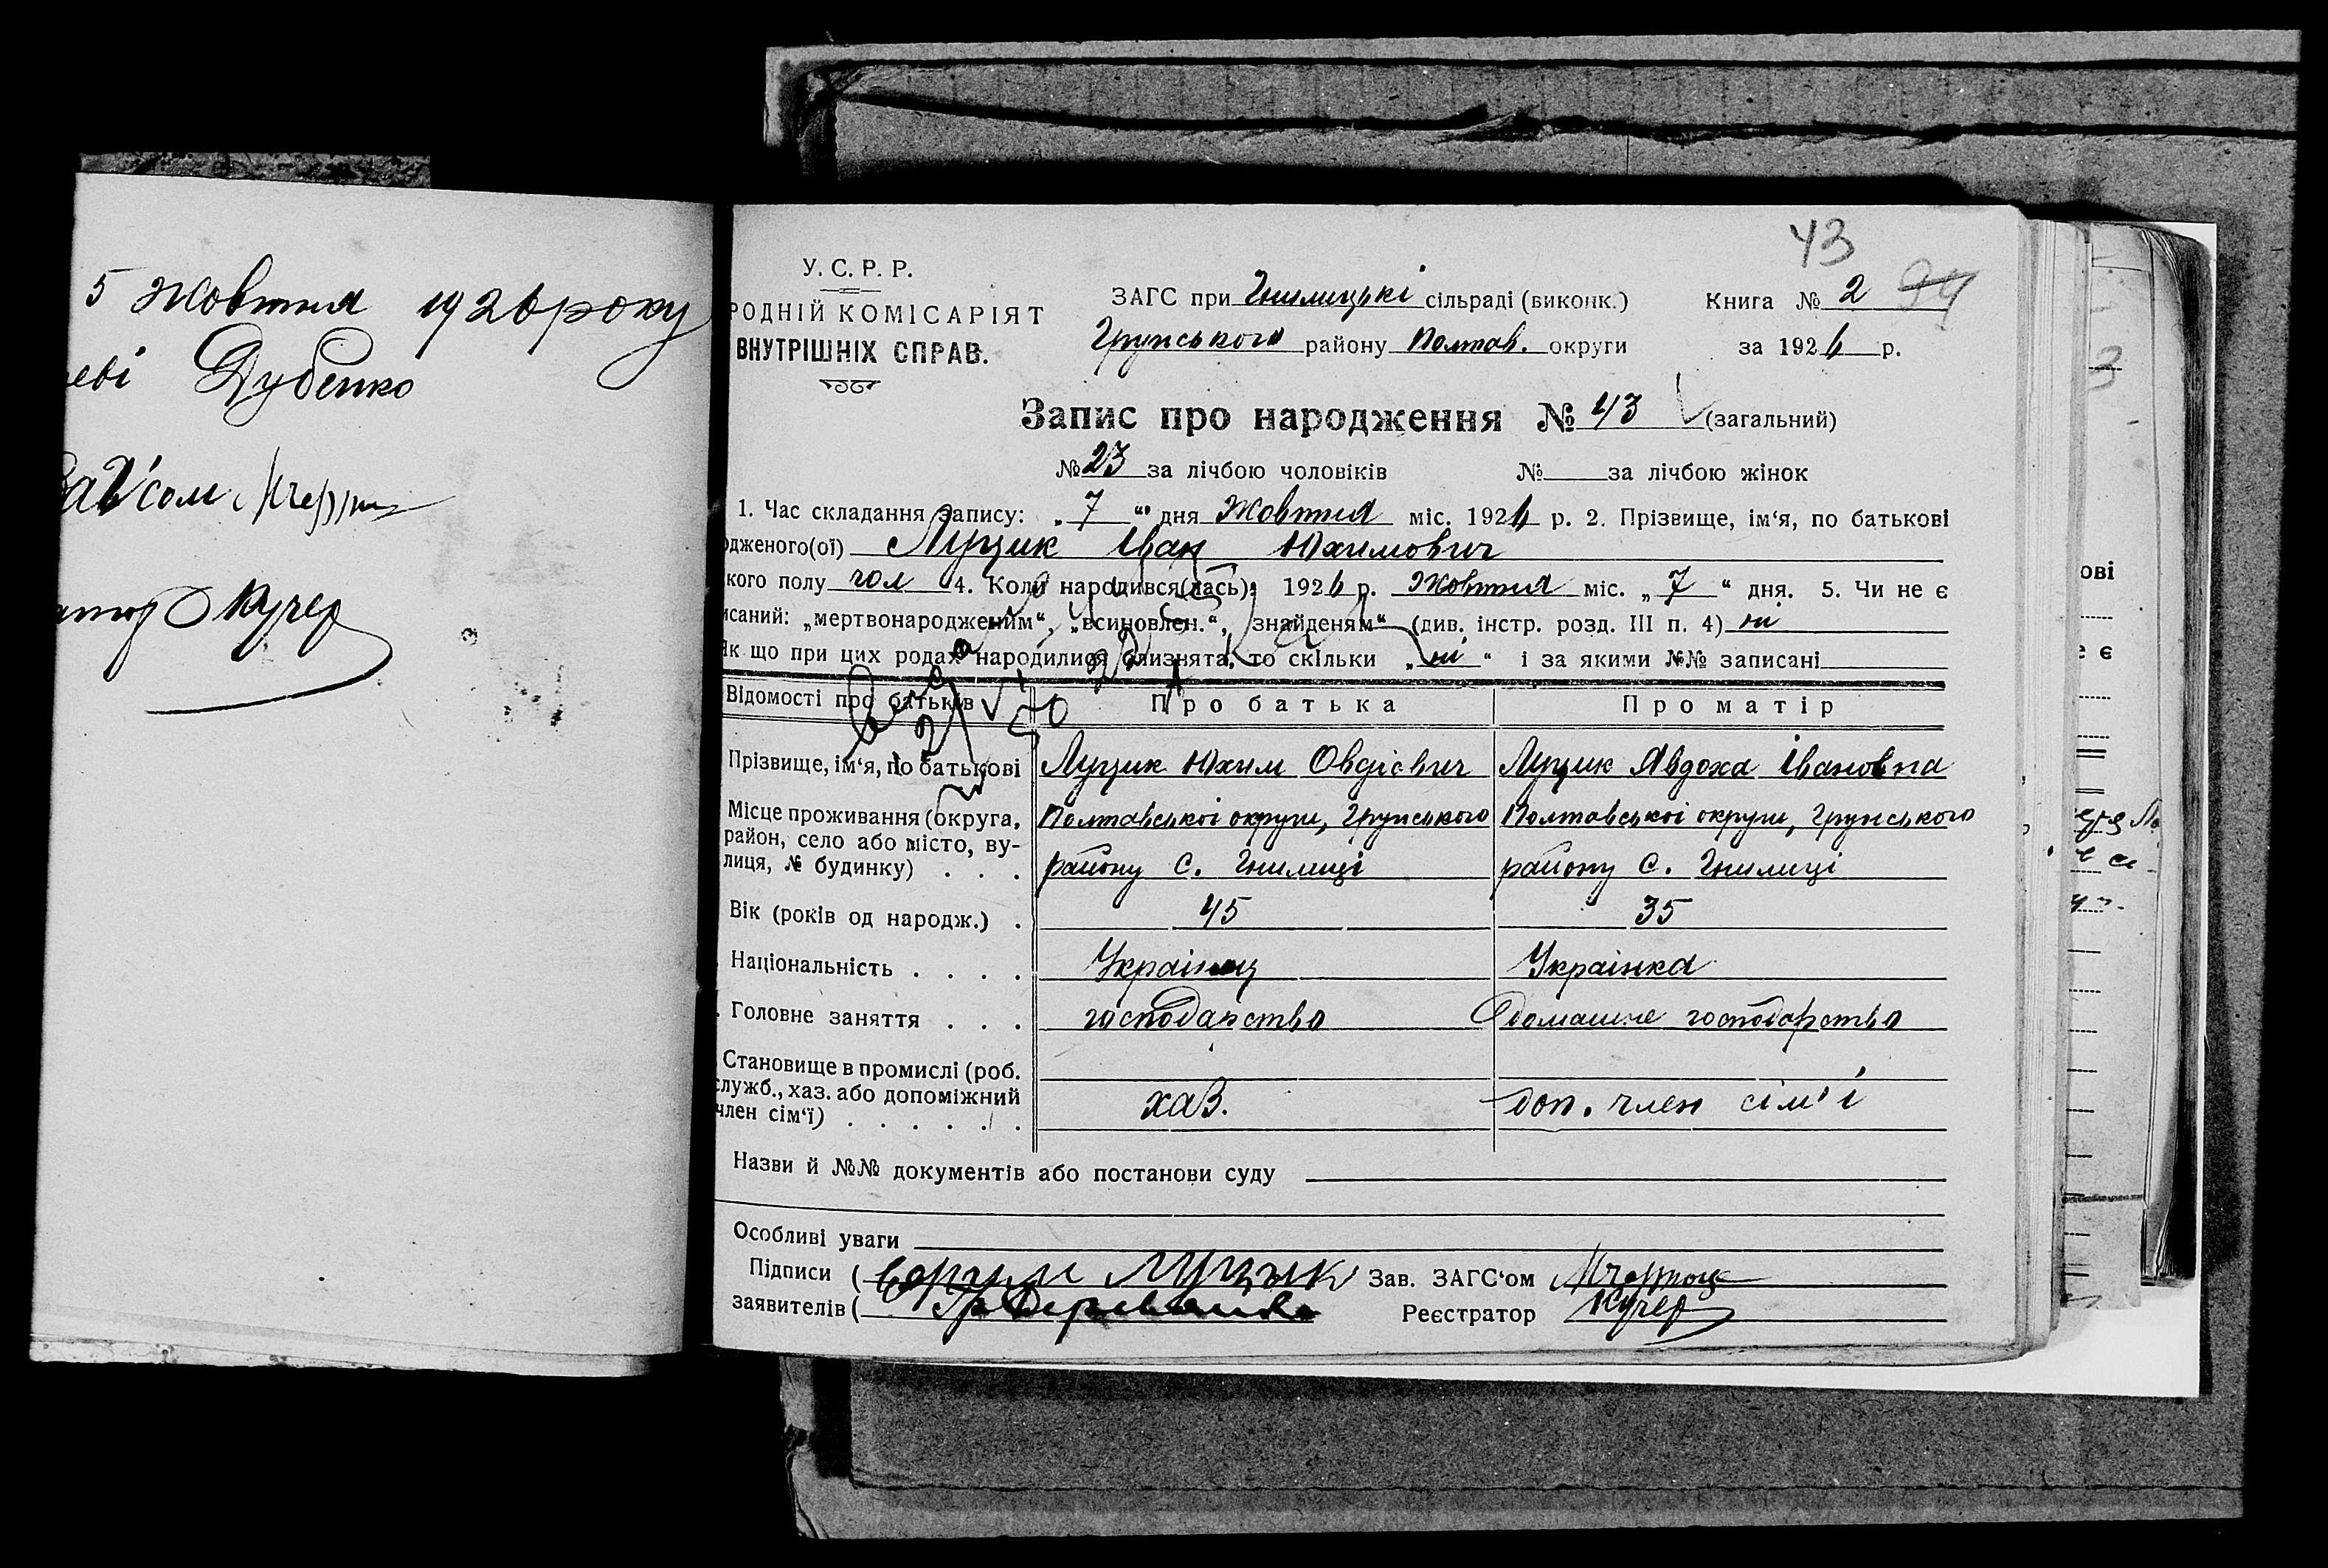 5 Жовтня 1926 року
еві Дубенко
Кучер
43
У. С. Р. Р.
РОДНІЙ КОМІСАРІЯТ
ВНУТРІШНІХ СПРАВ.
ЗАГС при Гнилицькі сільраді (виконк.)
Грунського району Полтав. округи
Книга № 2 94
за 1926 р.
Запис про народження № 43 (загальний)
№ 23 за лічбою чоловіків № за лічбою жінок
1. Час складання запису: „7“ дня Жовтня міс. 1926 р. 2. Прізвище, ім‘я, по батькові
дженого(ої) Луцик Іван Юхимович
кого полу чол 4. Коли народився(лась): 1926 р. Жовтня міс. „7“ дня. 5. Чи не є
исаний: „мертвонародженим“, „всиновлен.“, знайденям“ (див. інстр. розд. III п. 4) ні
Як що при цих родах народилися близнята, то скільки „ні“ і за якими №№ записані
Відомості про батьків Про батька Про матір
Прізвище, ім‘я, по батькові Луцик Юхим Овдієвич Луцик Явдоха Івановна
Місце проживання (округа, район, село або місто, ву-
лиця, № будинку) . . .
Полтавської округи, Грунського Полтавської округи, Грунського
району с. Гнилиці району с. Гнилиці
Вік (років од народж.) . 45 35
Національність . . . . Українец Українка
Головне заняття . . . господарство домашне господарство
Становище в промислі (роб.
служб., хаз. або допоміжний
член сім‘ї) . . . . . .
хаз. доп. член сім'ї
Назви й №№ документів або постанови суду
Особливі уваги
Підписи ( Луцик Зав. ЗАГС‘ом
заявителів ( Реєстратор Кучер
ові
е є